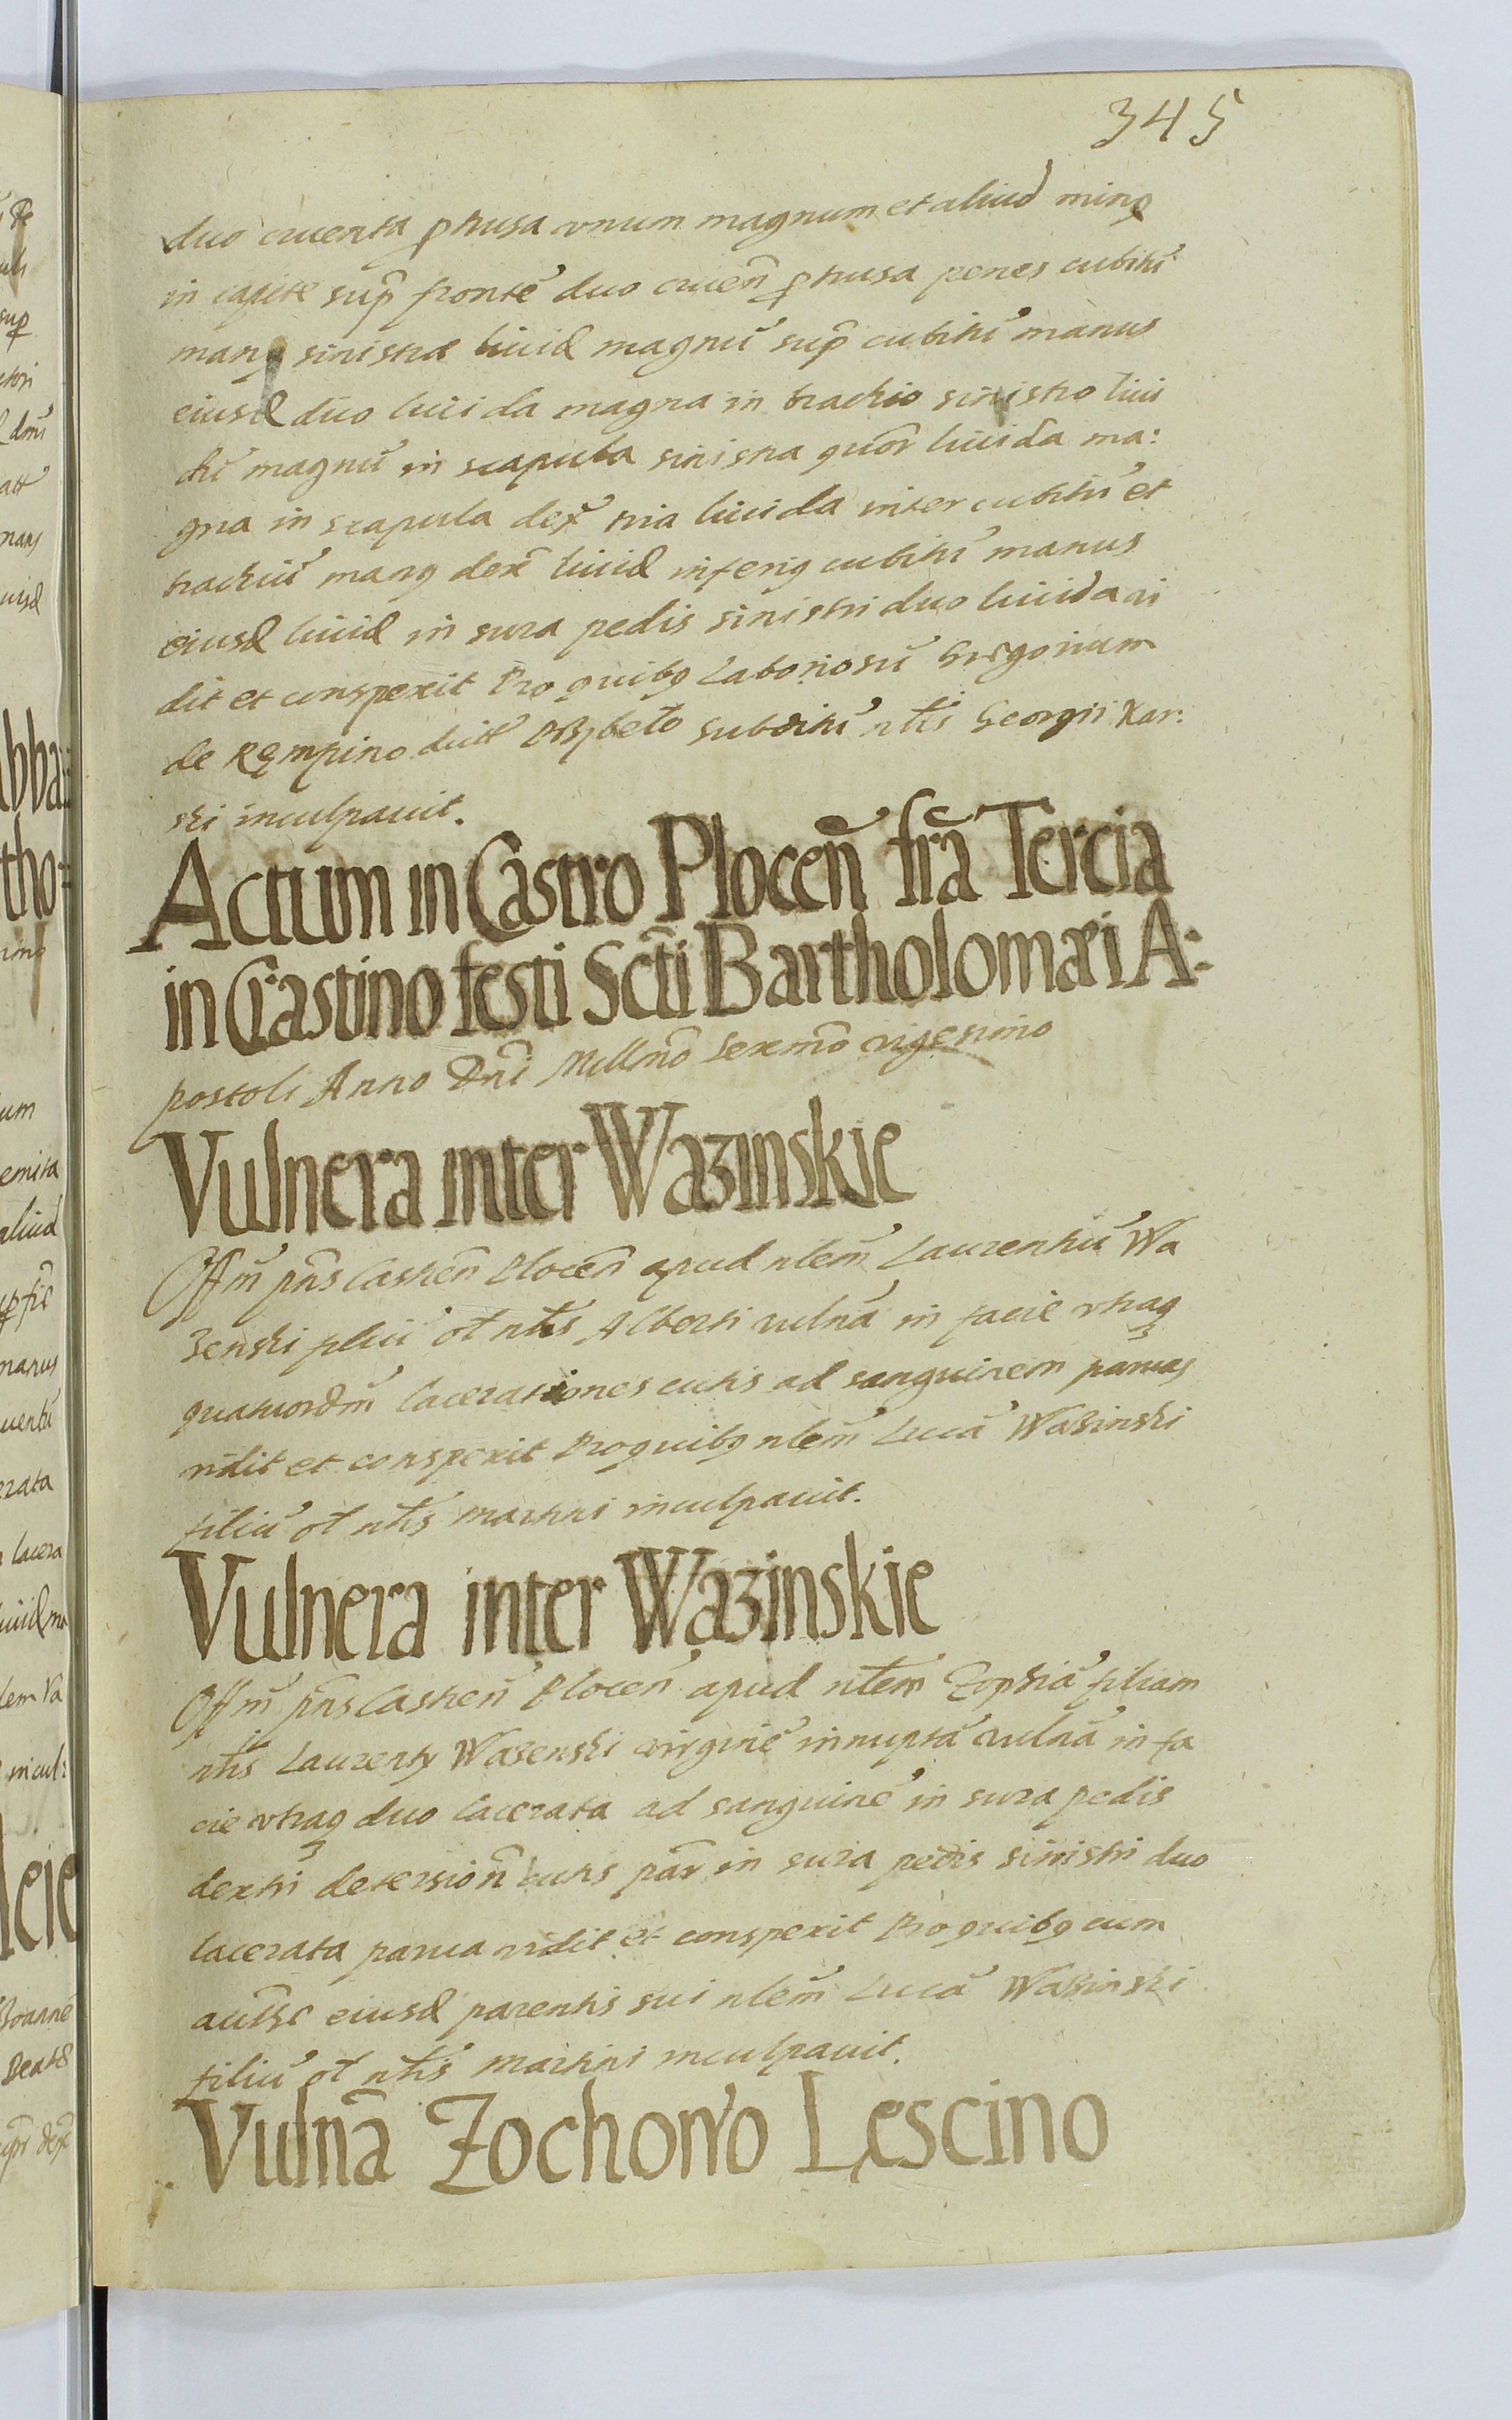 345
duo cruenta ꝑtusa vnum magnum et aliud minꝰ
in capite sup̃ fronte᷑ duo cruen̄ ꝑtusa penes cubitū
manꝰ sinistræ liuid magnū sup̃ cubitū manus
eiusd duo liuida magna in brachio sinistro liui
dū magnū in scapula sinistra quor̃ liuida ma:
gna in scapula dex̃ tria liuida inter cubitū et
brachiū manꝰ dex̃ liuid inferiꝰ cubitū manus
eiusd liuid in sura pedis sinistri duo liuida vi
dit et conspexit Pro quibꝰ Laboriosū Gregorium
de Kęmpino dictū subditū nt̃is Georgii Kar:
ski inculpauit.
Actum in Castro Plocen̄ fr̃a Tercia
in Crastino festi Scti Bartholomæi A:
postoli Anno Dn̄i Mill̃mo Sexm̃o vigesimo
Vulnera inter Wazinskie
Offm̄ pn̄s Castren̄ Plocen̄ apud nlem̄ Laurentiū Wa
zenski filiū ol nt̃is Alberti vuln̄a in facie vtraqꝫ
quatuordm̄ lacerationes cutis ad sanguinem paruas
vidit et conspexit Pro quibꝰ nlem̄ Lucā Wazinski
filiū ol nt̃is Martini inculpauit.
Vulnera inter Wazinskie
Offm̄ pn̄s Castren̄ Plocen̄ apud nt̃lem Zophiā filiam
nt̃is Laurenty Wazenski virginē innuptā vuln̄a in fa
cie vtraqꝫ duo lacerata ad sanguinē in sura pedis
dextri detersion̄ cutis par̃ in sura pedis sinistri duo
lacerata parua vidit et conspexit Pro quibꝰ cum
eiusd parentis sui nlem̄ Lucā Wazinski
filiū ol nt̃is Martini inculpauit.
Vuln̄a Zochowo Lescino